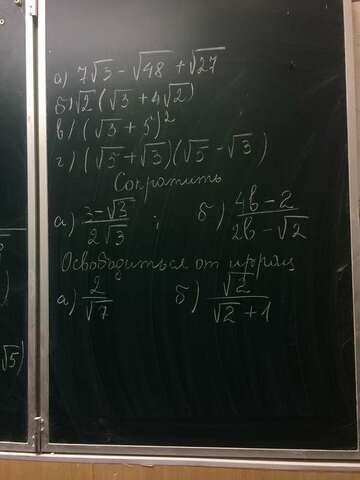 а) 7√3 − √48 + √27
б) √2 (√3 + 4√2)
в) (√3 + 5)²
г) (√5 + √3)(√5 − √3)
Сократить
а) (3 − √3)/(2√3) ; б) (4b − 2)/(2b − √2)
Освободиться от иррац
а) 2/√7 б) √2/(√2 + 1)
√5)